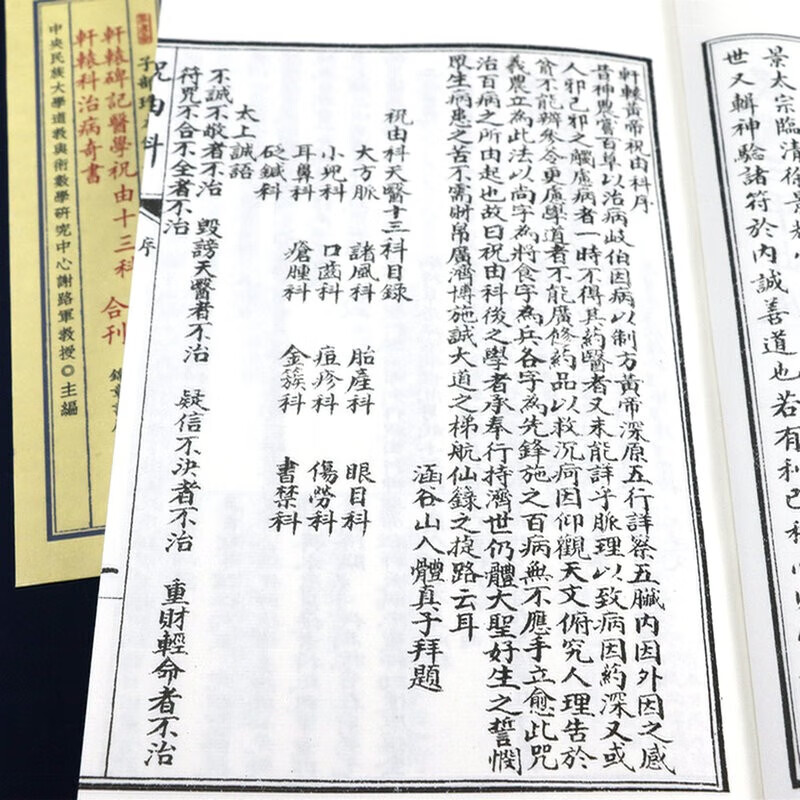 景太宗臨清徐景
世又輯神驗諸符於內誠善道也若有利
軒轅黃帝祝由科序
昔神農嘗百草以治病岐伯因病以制方黃帝深原五行詳察五臟內因外因之感
人邪己邪之觸慮病者一時不得其药醫者又未能詳乎脈理以致病因药深又或
貧不能辦參令更慮學道者不能廣修药品以救沉疴因仰觀天文俯究人理告於
義農立為此法以尚字為將食字為兵各字為先鋒施之百病無不應手立愈此咒
治百病之所由起也故曰祝由科後之學者承奉行持濟世仍體大聖好生之誓憫
眾生病患之苦不需財帛廣濟博施誠大道之梯航仙錄之捷路云耳
涵谷山人體真子拜題
祝由科天醫十三科目錄
大方脈 諸風科 胎產科 眼目科
小兒科 口齒科 痘疹科 傷勞科
耳鼻科 瘡腫科 金簇科 書禁科
砭鍼科
太上誡語
不誠不敬者不治 毀謗天醫者不治 疑信不決者不治 重財輕命者不治
符咒不合不全者不治
祝由科 序 一
子部珍
軒轅碑記醫學祝由十三科 合刊
軒轅科治病奇書
中央民族大學道教與術數學研究中心謝路軍教授◎主編